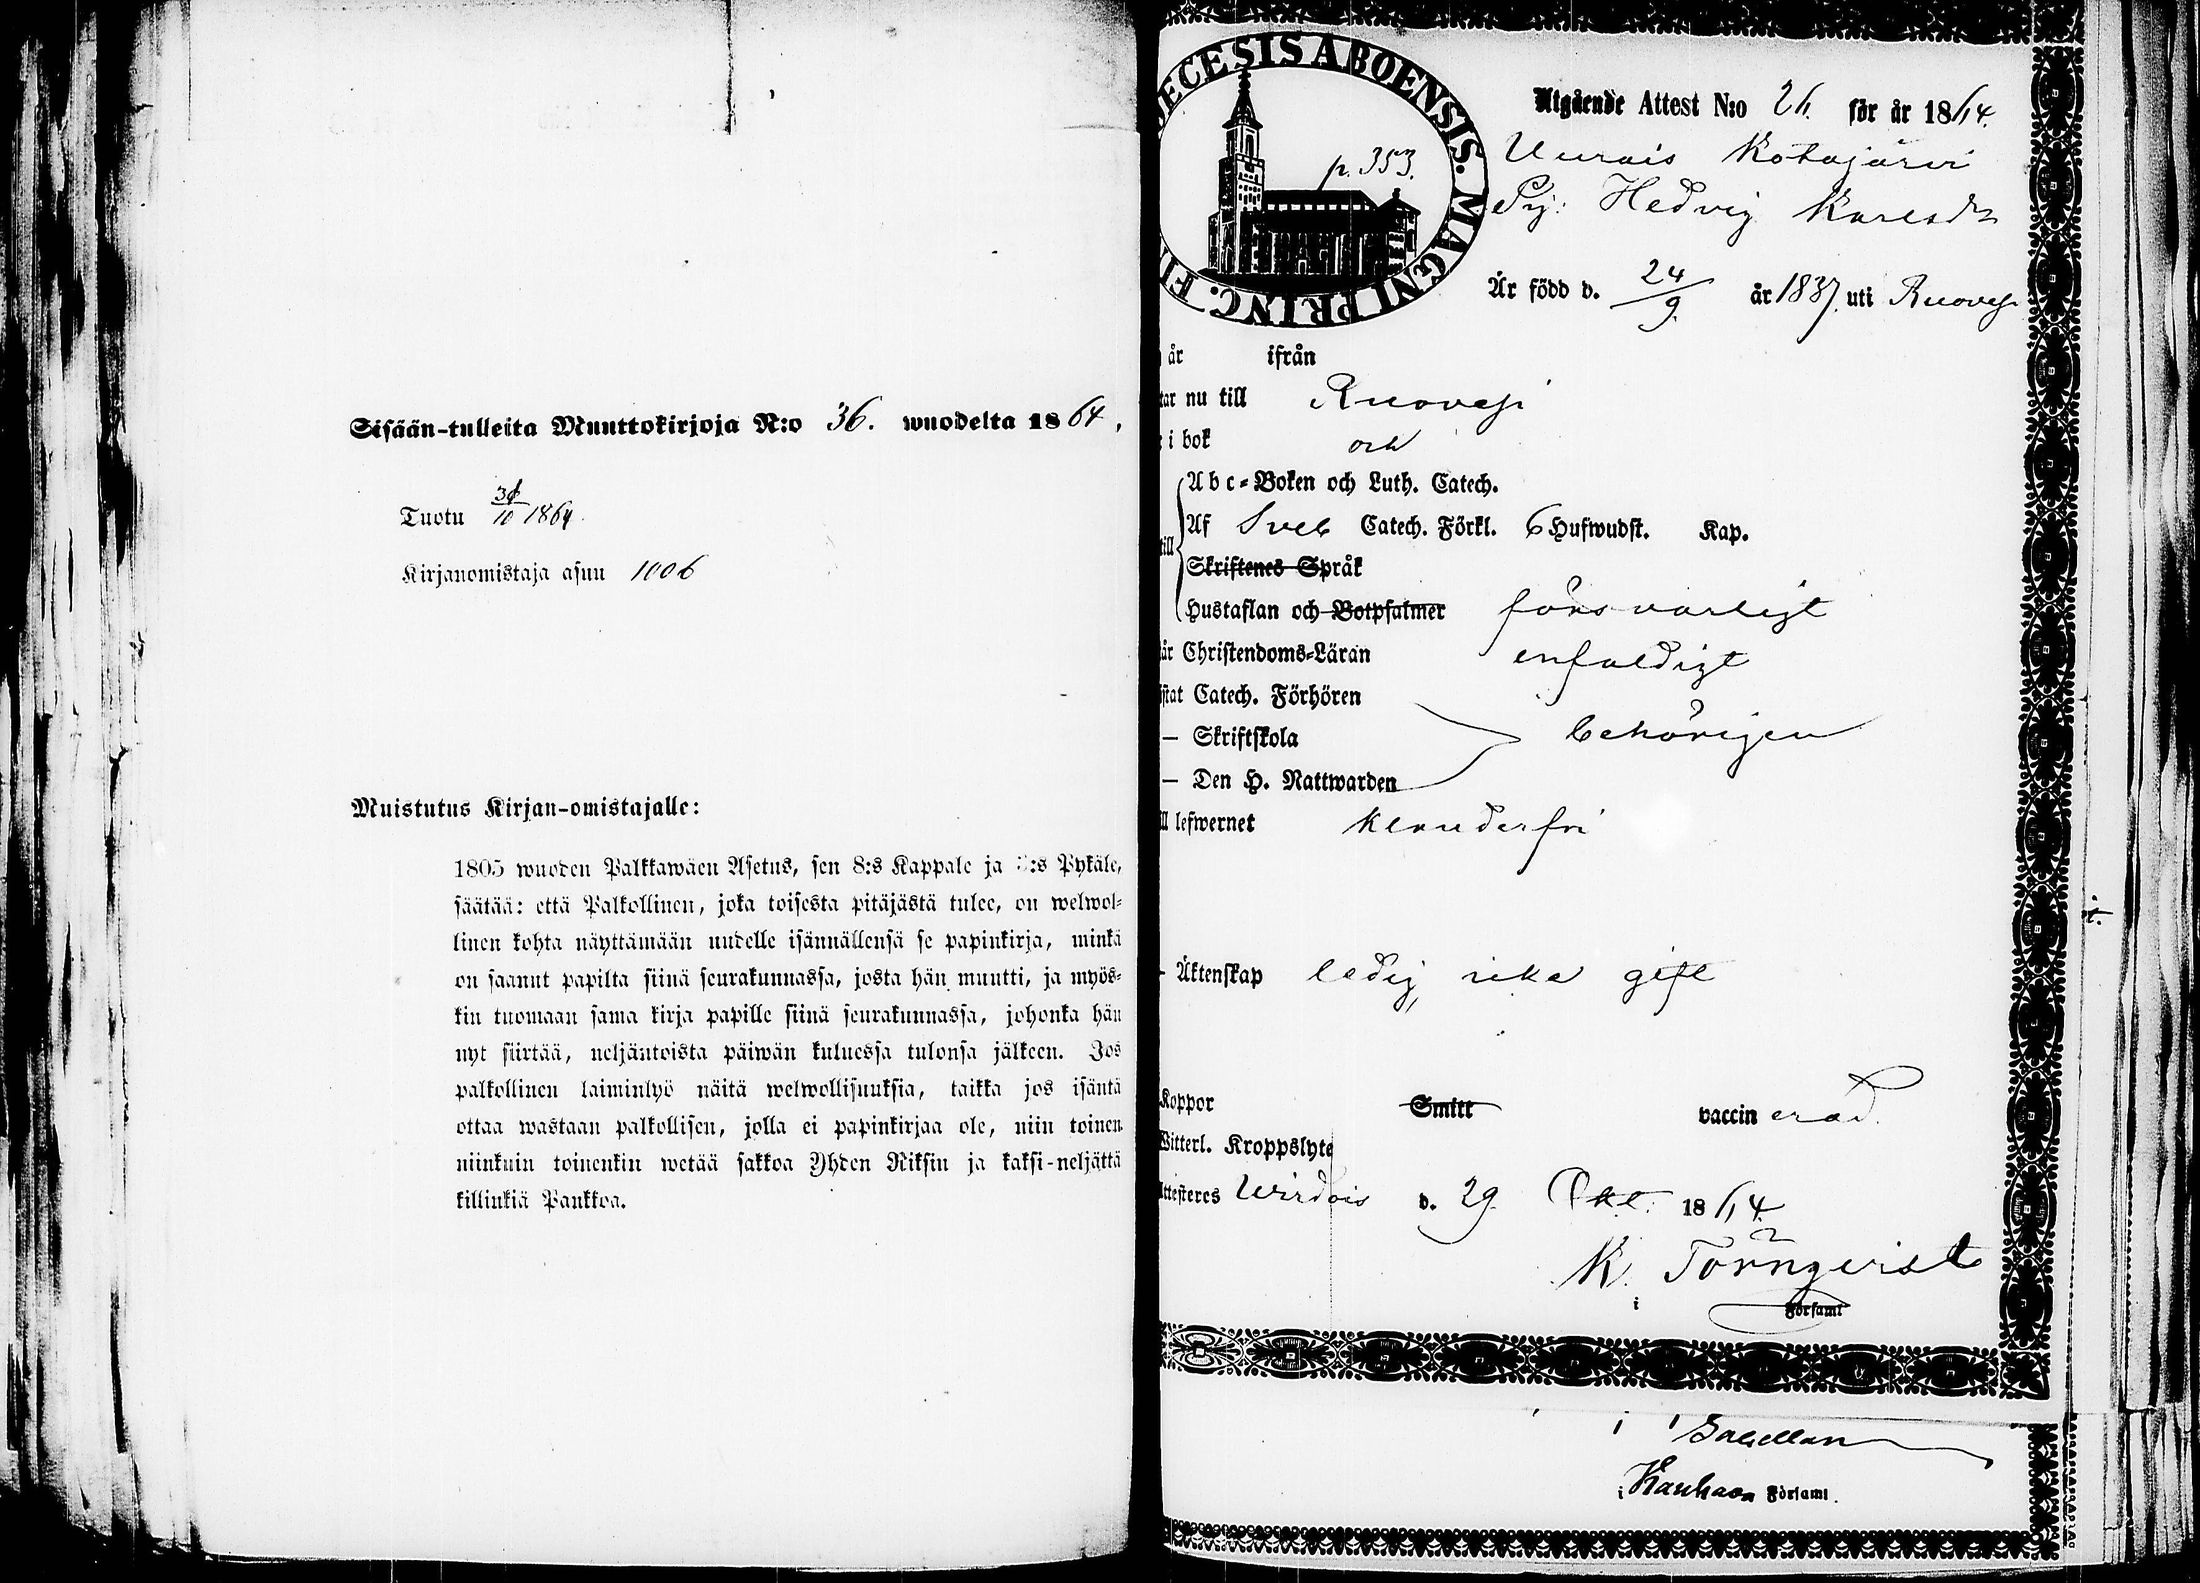 Sisään-tulleita Muuttokirjoja N:o 36. wuodelta 1864.
Tuotu 31/10 1864.
Kirjanomistaja asuu 1006
Muistutus Kirjan-omistajalle:
1805 wuoden Palkkawäen Asetus, sen 8:s Kappale ja :s Pykäle,
säätää: että Palkollinen, joka toisesta pitäjästä tulee, on welwol-
linen kohta näyttämään uudelle isännällensä se papinkirja, minkä
on saanut papilta siinä seurakunnassa, josta hän muutti, ja myös-
kin tuomaan sama kirja papille siinä seurakunnassa, johonka hän
nyt siirtää, neljäntoista päiwän kuluessa tulonsa jälkeen. Jos
palkollinen laiminlyö näitä welwollisuuksia, taikka jos isäntä
ottaa wastaan palkollisen, jolla ei papinkirjaa ole, niin toinen
niinkuin toinenkin wetää sakkoa Yhden Riksin ja kaksi-neljättä
killinkiä Pankkoa.
ECESIS ABOENSIS. MAGNI PRINC. FI
p. 353.
Utgående Attest N:o 26. för år 1864.
Kotajärvi
Pig: Hedvig Karlsdr
Är född d. 24/9. år 1837. uti Ruovesi
år ifrån
tar nu till Ruovesi
i bok och
Abc-Boken och Luth. Catech.
till Af Sveb Catech. Förkl. 6 Hufwudst. Kap.
Skriftenes Språk
Hustaflan och Botpsalmer försvarligt
år Christendoms-Läran enfaldigt
istat Catech. Förhören
— Skriftskola behörigen
— Den H. Nattwarden
ll lefwernet klanderfri
- Äktenskap ledig, icke gift
Koppor Smitt vaccinerad.
Witterl. Kroppslyte
Attesteres Wirdois d. 29. Okt. 1864.
K. Törnqvist
i Församl
i Kauhava Församl.